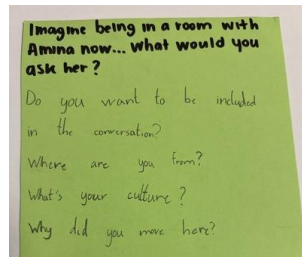 Imagine being in a room with
Amina now... What would you
ask her?
Do you want to be included
in the conversation?
Where are you from?
What's your culture?
Why did you move here?